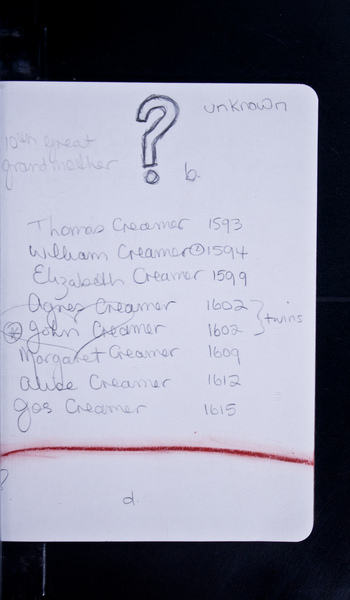 unknown
?
10th great
grandmother
b.
Thomas Creamer 1593
William Creamer ① 1594
Elizabeth Creamer 1599
Agnes Creamer 1602
John Creamer 1602
twins
Morgaret Creamer 1609
Alice Creamer 1612
Jos Creamer 1615
?
d.